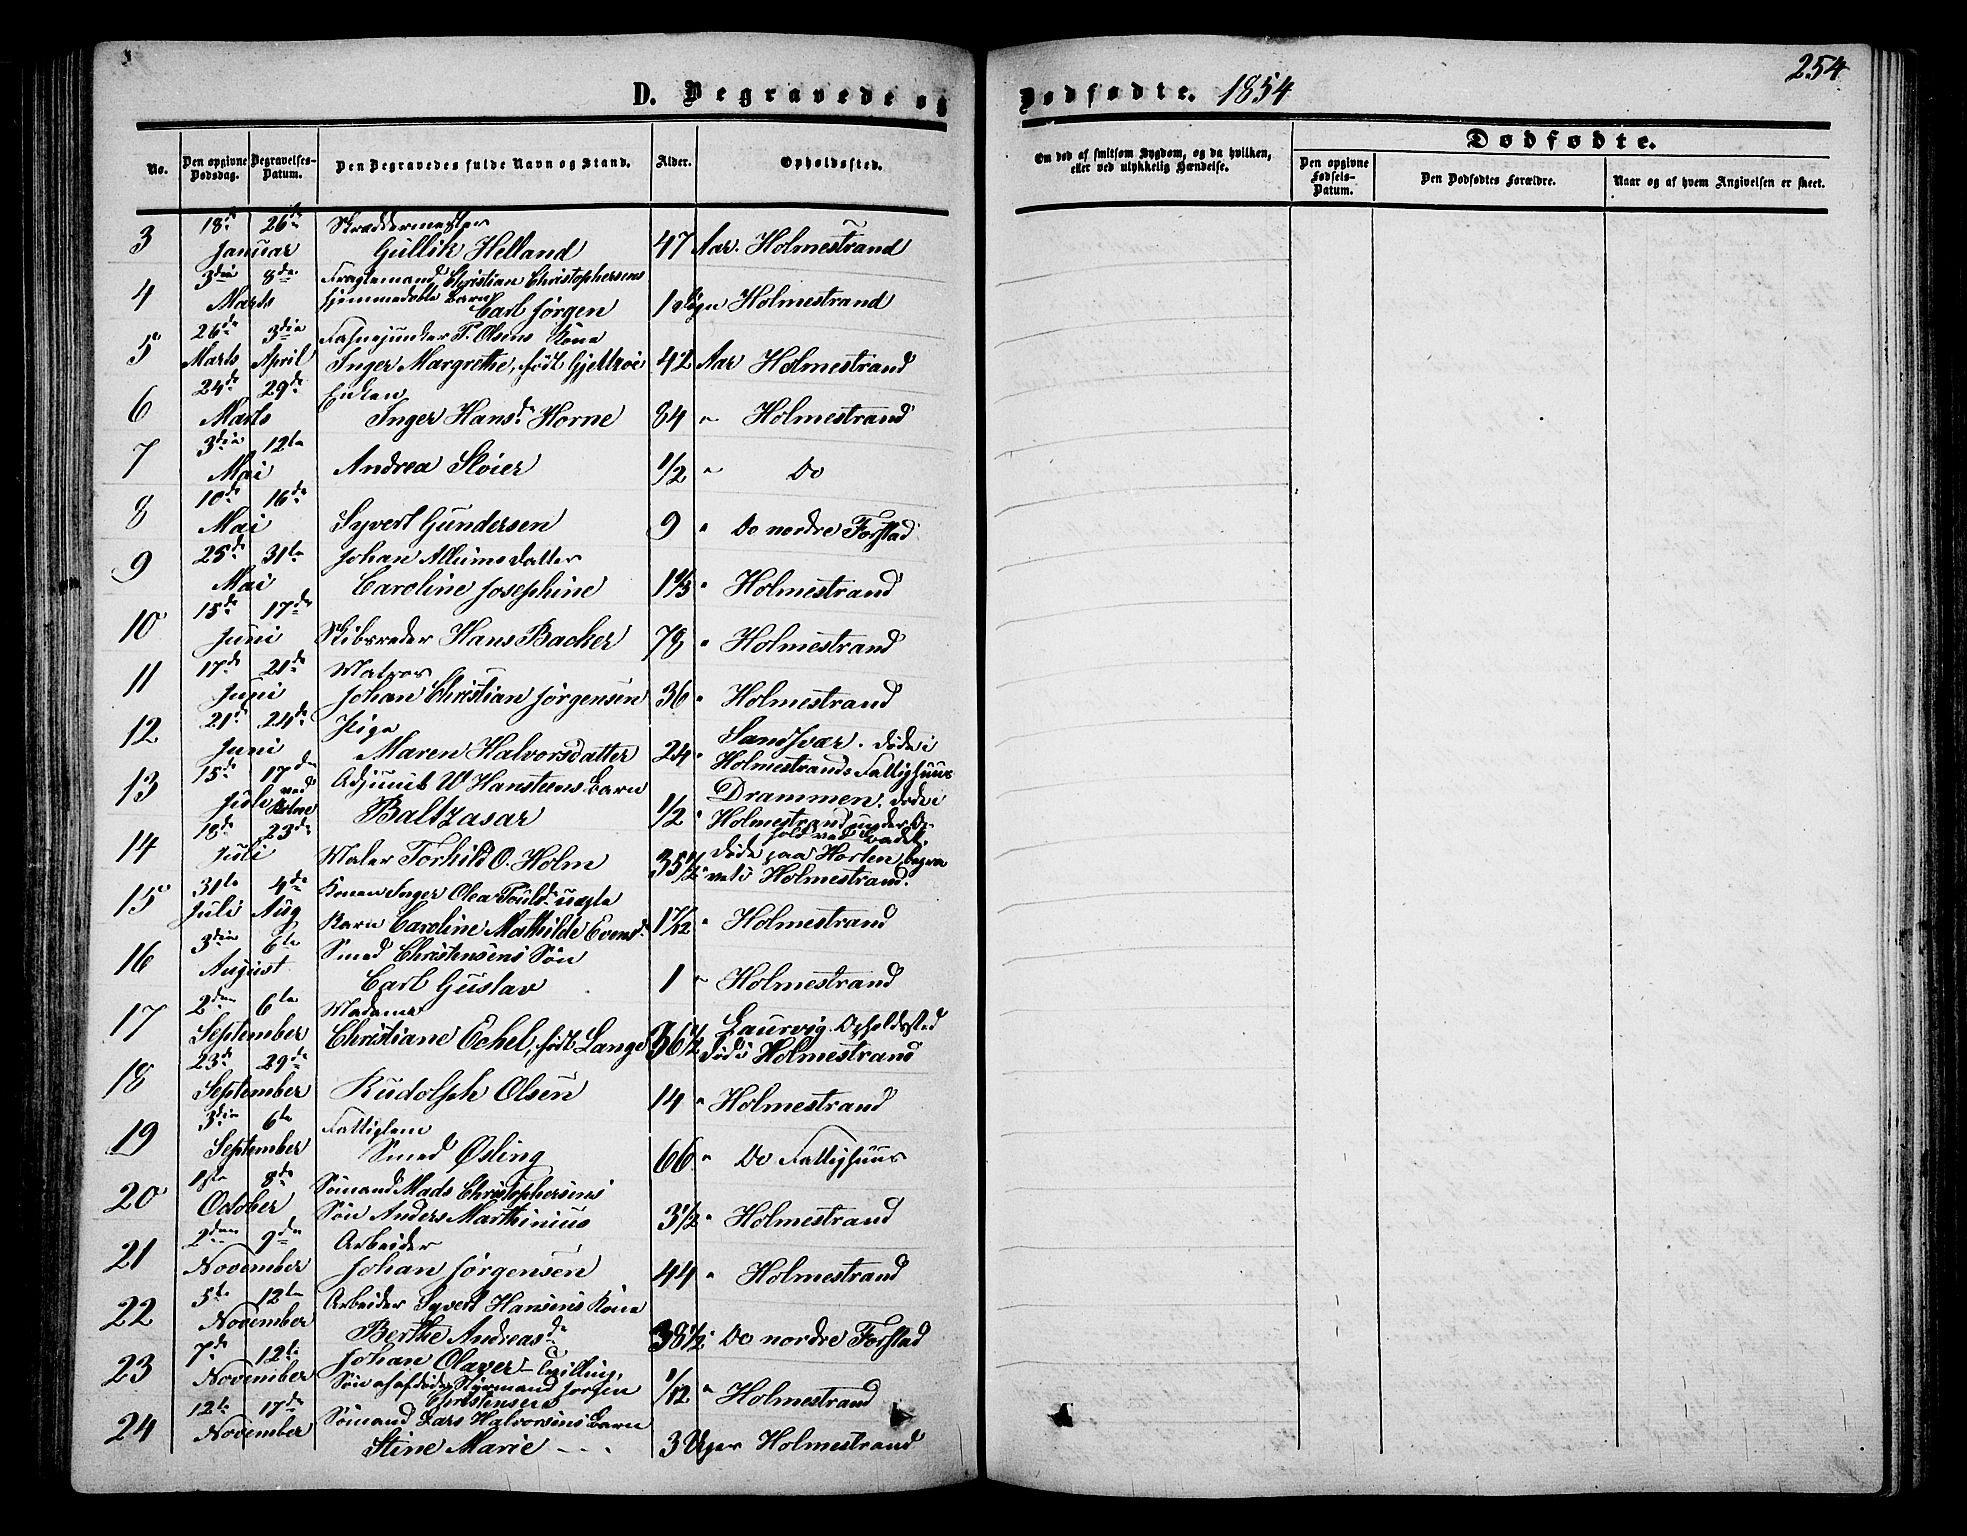 D. Begravede og Dødfødte. 1854
254
No.
Den opgivne Dødsdag.
Begravelses-Datum.
Den Begravedes fulde Navn og Stand.
Alder.
Opholdssted.
Om død af smitsom Sygdom, og da hvilken, eller ved ulykkelig Hændelse.
Dødfødte.
Den opgivne Fødsels-Datum.
Den Dødfødtes Forældre.
Naar og af hvem Angivelsen er skeet.
3 18de 26de Skræddermester
Januar Gullik Helland 47 Aar. Holmestrand
3die 8de Fragtemand Christian Christophersens
4 Marts hjemmedøbte Barn Carl Jørgen 1 Holmestrand
26de 3die Fanejunker T. Olsens Kone
5 Marts April Inger Margrethe, født 42 Aar Holmestrand
24de 29de Enken
6 Marts Inger Hansd. Horne 84 " Holmestrand
7 3die 12te
Mai Andrea Skøier 1/2 " Do
10de 16de
8 Mai Syvert Gundersen 9 " Do nordre Forstad
25de 31te Johan Allums Datter
9 Mai Caroline Josephine 1 " Holmestrand
15de 17de
10 Juni Skibsreder Hans Backer 78 " Holmestrand
17de 21de Matros
11 Juni Johan Christian Jørgensen 36 " Holmestrand
21de 24de Pige
12 Juni Maren Halvorsdatter 24 " Sandsvær. døde i
Holmestrands Fattighuus
15de 17de Adjunct W Hansteens Barn
13 Juli Baltzasar 1/2 " Drammen. døde i
Holmestrand under Op-
hold ved Badet.
18de 23de
14 Juli Maler Torkild O. Holm 35 1/2 døde paa Horten, begra
vet i Holmestrand.
31te 4de Konen Inger Olea uægte
15 Juli Aug Barn Caroline Mathilde Evensd. 1 7/12 " Holmestrand
3die 6te Smed Christensens Søn
16 August Carl Gustav 1 " Holmestrand
2den 6te Madame
17 September Christiane Eckel, født Lange 36 1/2 Laurvig Opholdssted
død i Holmestrand
23de 29de
18 September Rudolph Olsen 14 " Holmestrand
3die 6te Fattiglem
19 September Smed Østing 66 " Do Fattighuus
1ste 8de Sømand Mads Christophersens
20 October Søn Anders Marthinius 3 1/2 " Holmestrand
2den 9de Arbeider
21 November Johan Jørgensen 44 " Holmestrand
5te 12te Arbeider Syvert Hansens Kone
22 November Berthe Andreasd. 38 1/2 " Do nordre Forstad
7de 12te Johan Olaves Tvilling,
23 November Søn af afdøde Styrmand Jørgen
Christensen 1/12 " Holmestrand
12te 17de Sømand Lars Halvorsens Barn
24 November Stine Marie 3 Uger Holmestrand